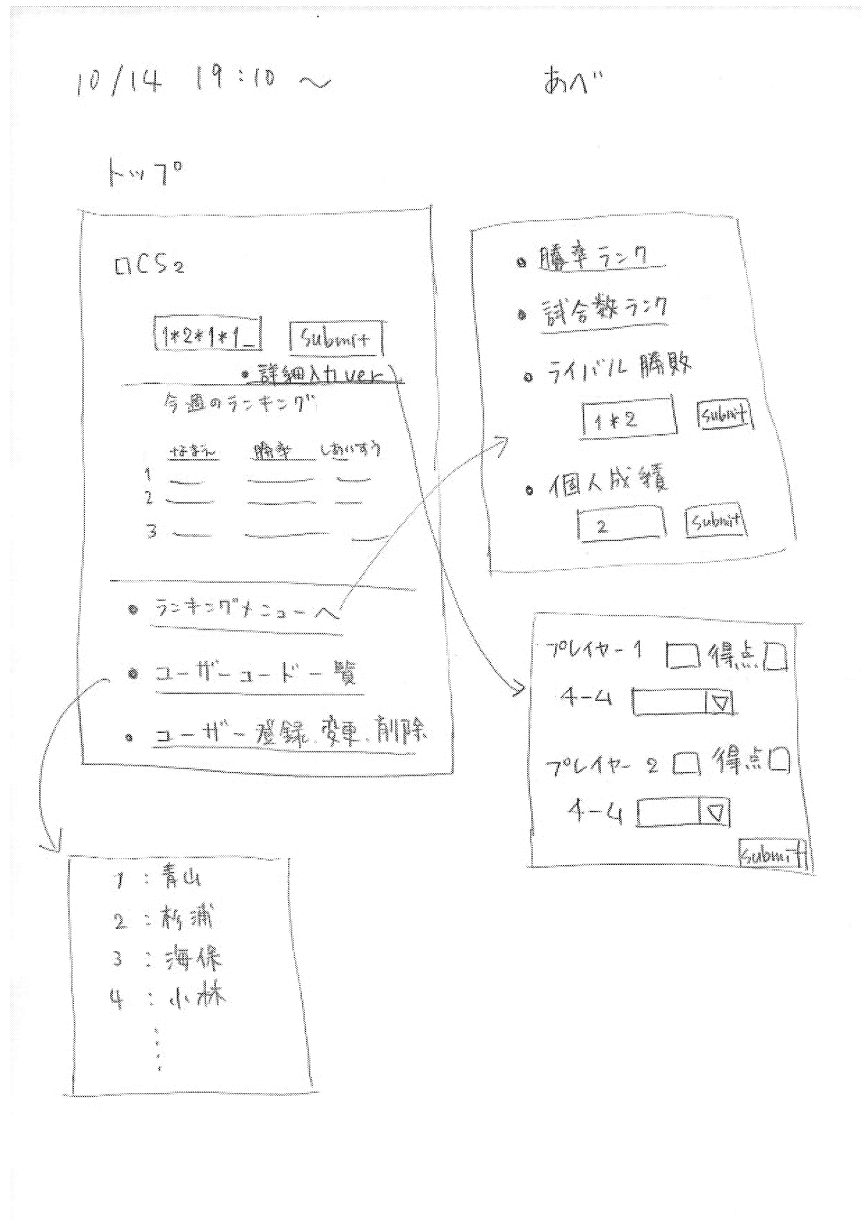 10/14 19:10 ～ あべ
トップ
ロCS2
1*2*1*1_ submit
・詳細入力ver
今週のランキング
なまえ 勝率 しあいすう
1
2
3
・ランキングメニューへ
・ユーザーコード一覧
・ユーザー登録、変更、削除
・勝率ランク
・試合数ランク
・ライバル勝敗
1*2 submit
・個人成績
2 submit
プレイヤー1 得点
チーム
プレイヤー2 得点
チーム
submit
1：青山
2：杉浦
3：海保
4：小林